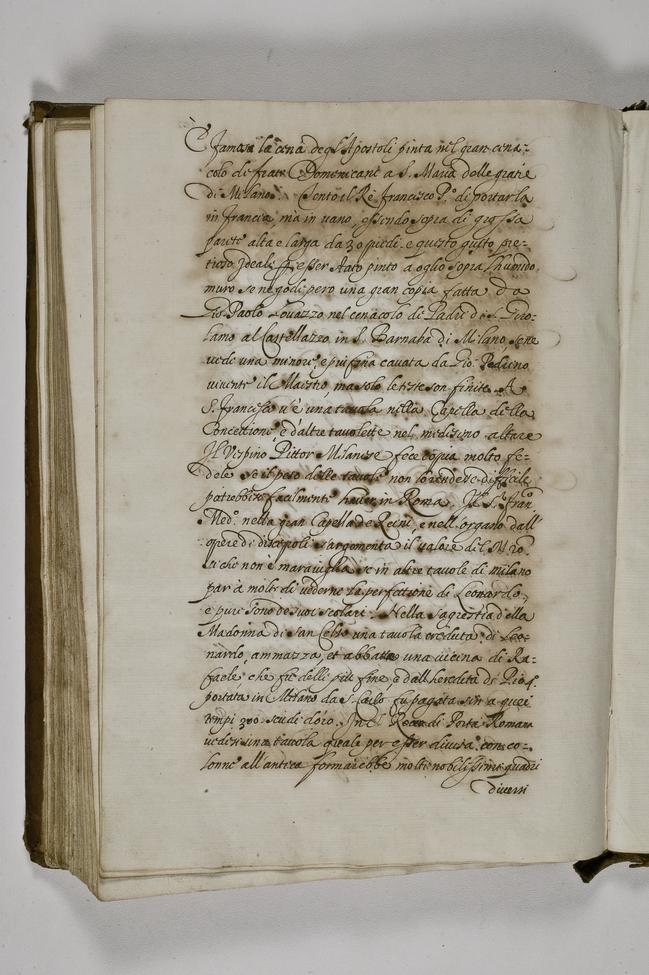 È famosa la cena degl'Apostoli pinta nel gran cena-
colo di frati Domenicani a S. Maria delle gratie
di Milano. Tentò il Rè Francesco P.º di portarla
in francia, ma in vano, essendo sopra di grossa
parete alta e larga da 30 piedi. e questo gusto pre-
tioso, Ideale, esser stato pinto a oglio sopra l'humido
muro se ne godi però una gran copia fatta da
Gio. Paolo Lovazzo nel cenacolo di Padri di S. Giro-
lamo al Castellazzo in S. Barnaba di Milano, se ne
vede una minore, e più fina cavata da Gio. Pedrino
vivente il Maestro, ma solo le teste son finite. A
S. Francesco v'è una tavola nella Capella della
Concettione, è d'altre tavolette nel medesimo altare
Il Vespino Pittor Milanese fece copia molto fe-
dele se il peso delle tavole non lo rendesse difficile
potrebbesi facilmente haver in Roma. Il S.r fran.co
Med.º nella gran Capella de Recini, e nell'organo dall'
opere di discepoli s'argomenta il valore del M.ro
si che non è maraviglia se in altre tavole di milano
par à molti di vederne la perfettione di Leonardo,
e pure sono de suoi scolari. Nella sagrestia della
Madonna di San Celso una tavola creduta di Leo-
nardo, ammazza, et abbatte una vicina di Ra-
faele che fù delli più fine, e dall'heredità di Pio 4.
portata in Milano da S. Carlo fu pagata sin a quei
tempi 300 scudi d'oro. In S. di Porta Romana
vedesi una tavola quale per esser divisa con co-
lonne all'antica formarebbe molti nobilissimi quadri
diversi